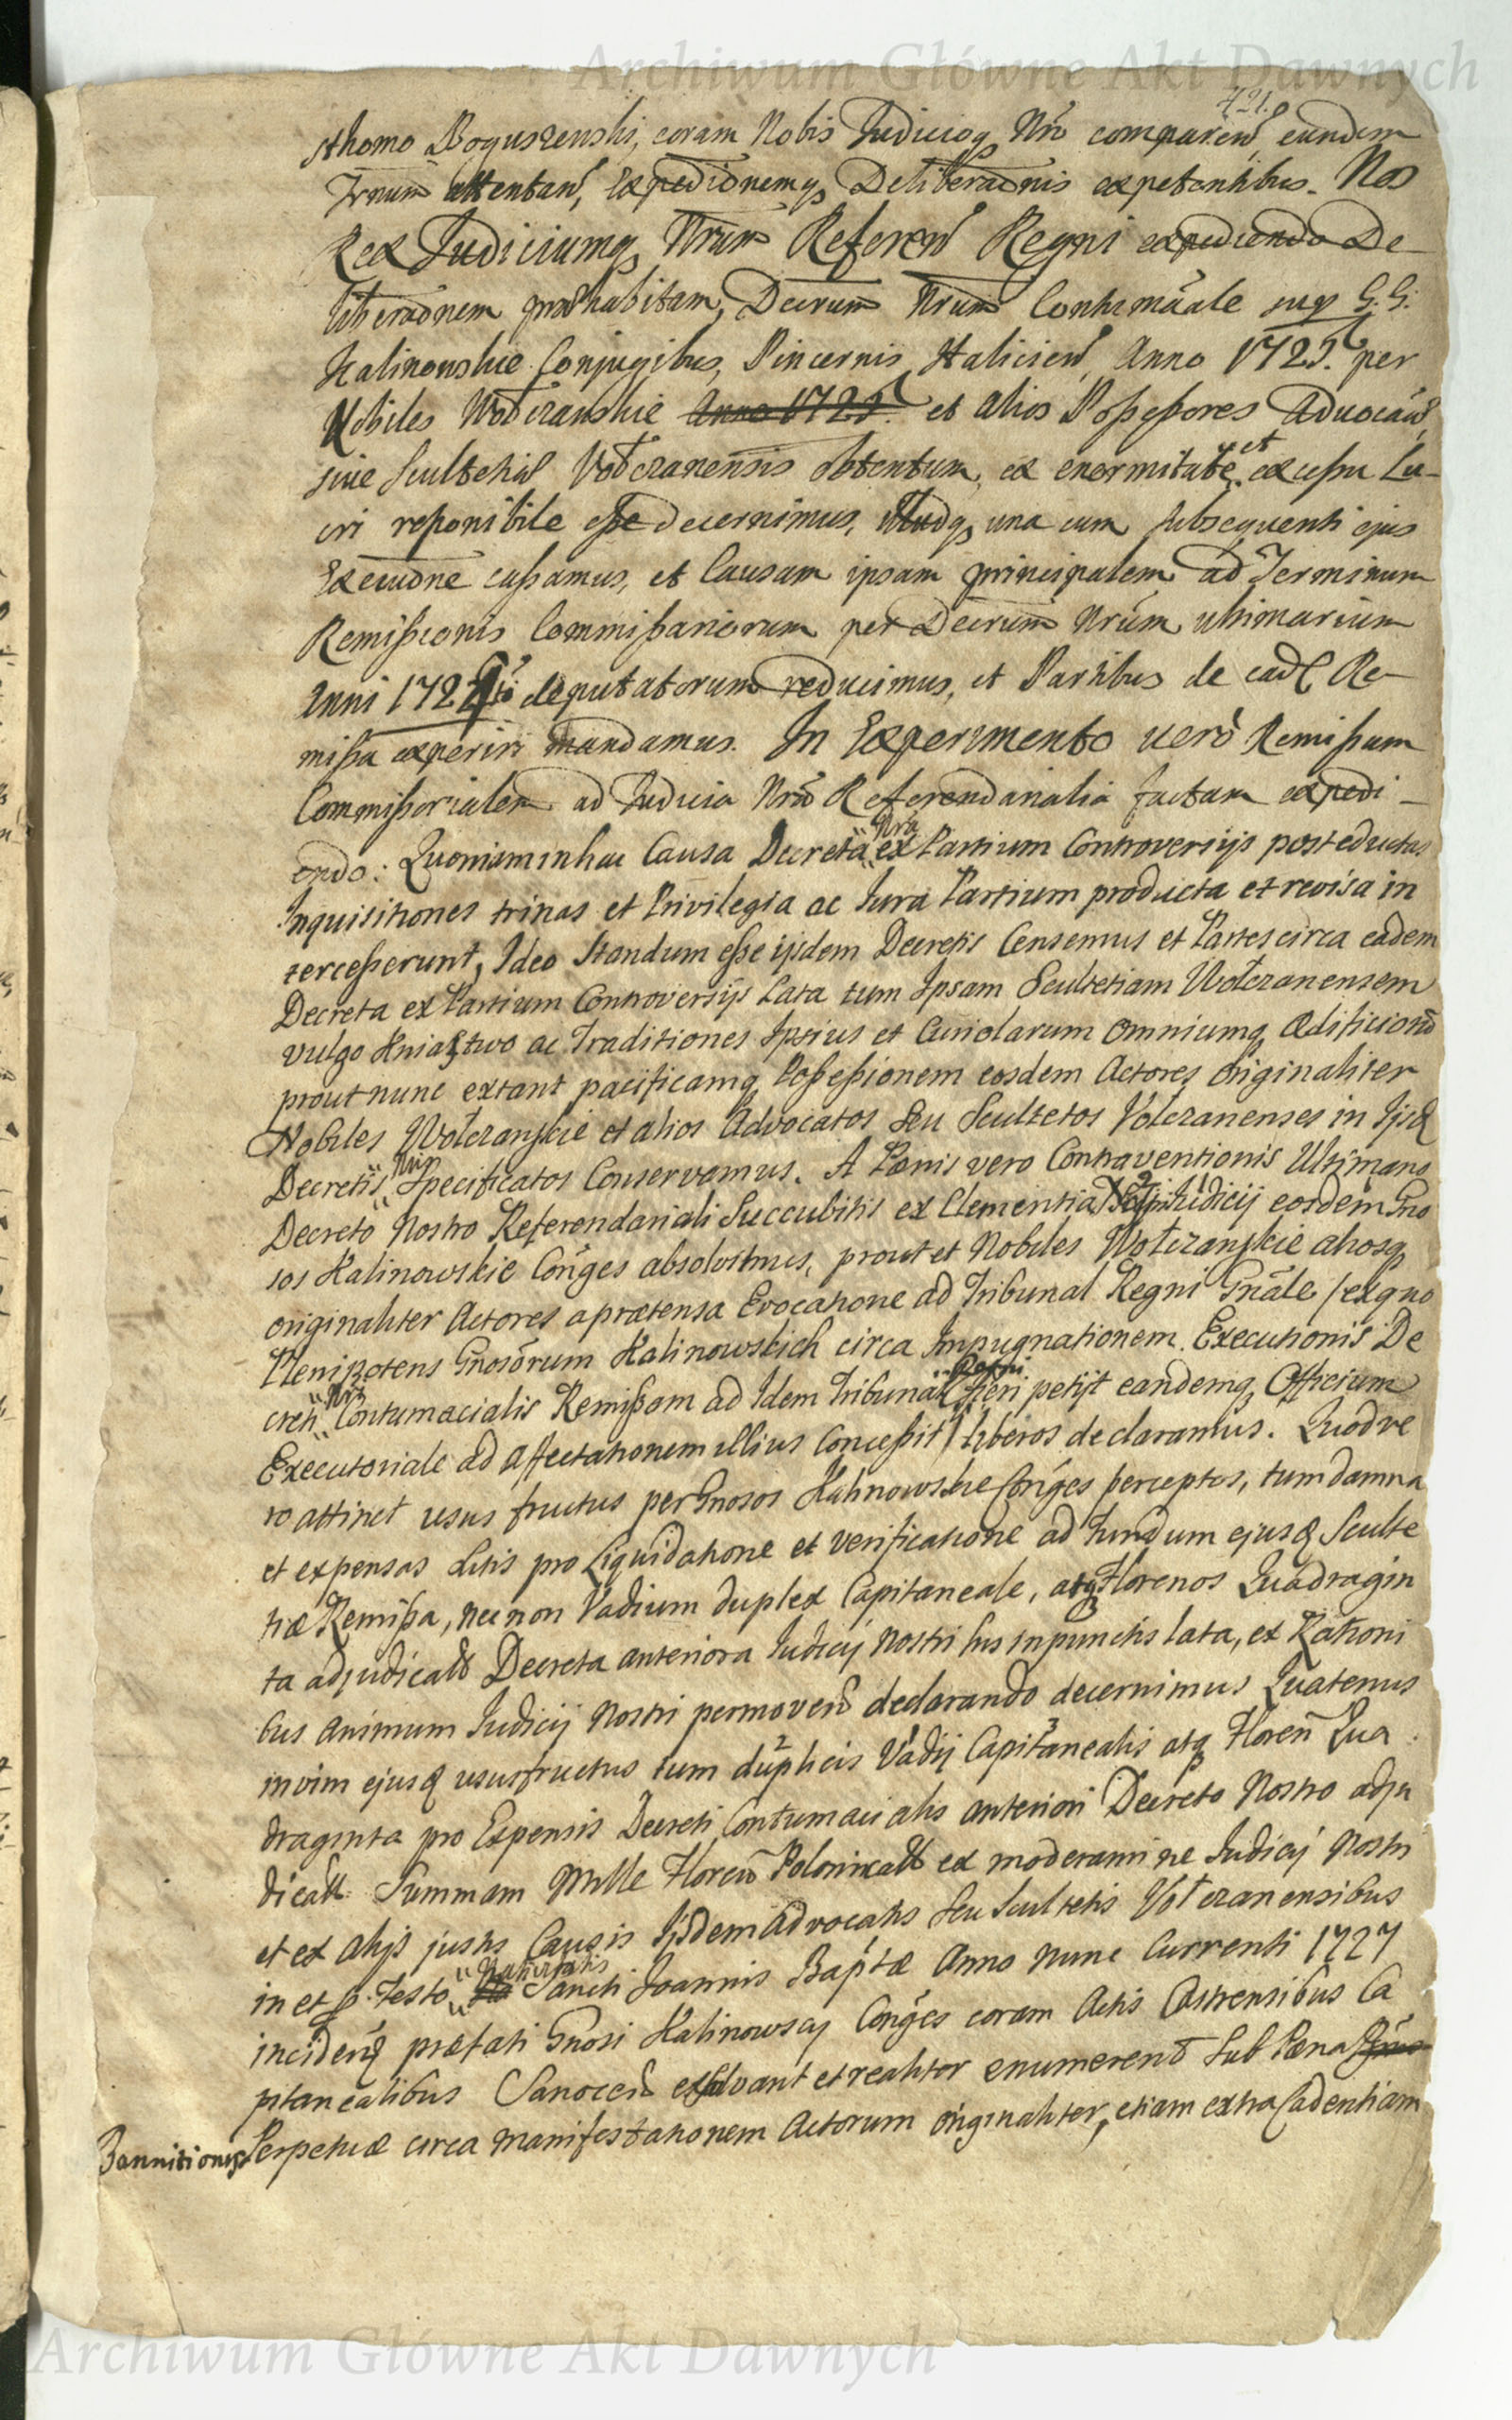 Archiwum Główne Akt Dawnych
421.
Thomo Boguszewski, coram Nobis Judicioq₃ Nrō comparen̄, eundem
Trnum attentan̄, Expedionemq₃ Deliberaōnis expetentibus. Nos
Rex Judiciumq₃ Nrum Referen̄ Regni expediendo De-
liberaōnem præhabitam, Decrum Nrum Contumāale sup G. G.
Kalinowskie Conjugibus, Pincernis Halicien̄, Anno 1725. per
Nobiles Wołczanskie Anno 1725. et alios Poßeßores Advocān̄
sive Scultetiæ Vołczanensis obtentum, ex enormitate et excessu Lu-
cri reponibile eße decernimus, illudq₃ una cum subsequenti ejus
Execuōne caßamus, et Causam ipsam principalem ad Terminum
Remißionis Commißariorum per Decrum Nrum ultimarium
Anni 1724to deputatorum reducimus, et Partibus de ead Re-
mißa experiri mandamus. In Experimento verò Remißam
Commißorialem ad Judicia Nrā Referendarialia factam expedi-
endo: Quoniam in hac Causa Decreta Nra ex Partium Controversijs post eductas
Inquisitiones trinas et Privilegia ac Jura Partium producta et revisa in
terceßerunt, Ideo Standum eße ijsdem Decretis Censemus et Partes circa eadem
Decreta ex Partium Controversijs Lata tum Ipsam Scultetiam Wołczanensem
vulgo Kniastwo ac Traditiones Ipsius et Curiolarum omniumq₃ Ædificiorū
prout nunc extant pacificamq₃ Poßeßionem eosdem Actores originaliter
Nobiles Wołczanskie et alios Advocatos Seu Scultetos Vołczanenses in Ijsd
Decretis Nris Specificatos Conservamus. A Pœnis vero Contraventionis Ultimario
Decreto Nostro Referendariali Succubitis ex Clementia Nostri Judicij eosdem Gno
sos Kalinowskie Conges absolvimus, prout et Nobiles Wołczanskie aliosq₃
originaliter Actores a prætensa Evocatione ad Tribunal Regni Gnāle /ex quo
Plenipotens Gnosorum Kalinowskich circa Impugnationem Executionis De
creti Nri Contumacialis Remißam ad Idem Tribunal Regni fieri petijt eandemq₃ Officium
Executoriale ad affectationem illius Conceßit/ liberos declaramus. Quod ve
ro attinet usus fructus per Gnosos Kalinowskie Conges perceptos, tum damna
et expensas Litis pro Liquidatione et verificatione ad fundum ejusd Sculte
tiæ Remißa, nec non Vadium duplex Capitaneale, atq₃ Florenos Quadragin
ta adjudican̄ Decreta anteriora Judicij Nostri his in punctis lata, ex Rationi
bus Animum Judicij Nostri permoven̄ declarando decernimus Quatenus
in vim ejusd ususfructus tum duplicis Vadij Capitanealis atq₃ Floren̄ Qua
draginta pro Expensis Decreti Contumacialis anteriori Decreto Nostro adju
dican̄ Summam Mille Floren̄ Polonicall ex moderamine Judicij Nostri
et ex alijs justis Causis Ijsdem Advocatis Seu Scultetis Vołczanensibus
in et p. Festo Nativitatis Sancti Joannis Baptæ Anno nunc Currenti 1727
inciden̄ præfati Gnosi Kalinowscy Conges coram Actis Castrensibus Ca
pitanealibus Sanocen̄ exolvant et realiter enumerent Sub Pœna
Bannitionis Perpetuæ circa Manifestationem Actorum originaliter, etiam extra Cadentiam
Archiwum Główne Akt Dawnych